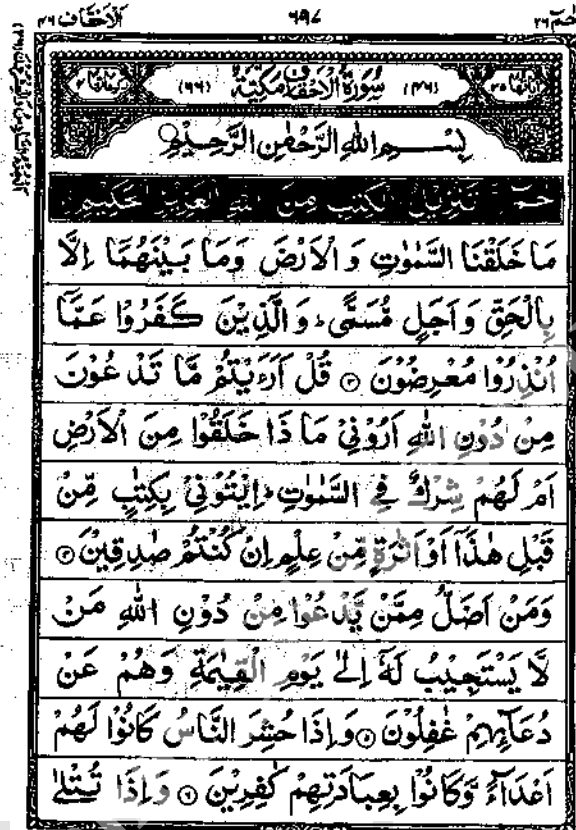 الاحقاف ٤٦ ٦٩٧ حٰمٓ ٢٦
(٤٦) سُوْرَةُ الْاَحْقَافِ مَكِّيَّةٌ (٦٦)
بِسْــمِ اللهِ الرَّحْمٰنِ الرَّحِيْمِ
حٰمٓ تَنْزِيْلُ الْكِتٰبِ مِنَ اللهِ الْعَزِيْزِ الْحَكِيْمِ
مَا خَلَقْنَا السَّمٰوٰتِ وَ الْاَرْضَ وَمَا بَيْنَهُمَا اِلَّا
بِالْحَقِّ وَ اَجَلٍ مُّسَمًّى ؕ وَ الَّذِيْنَ كَفَرُوْا عَمَّا
اُنْذِرُوْا مُعْرِضُوْنَ ۝٣ قُلْ اَرَءَيْتُمْ مَّا تَدْعُوْنَ
مِنْ دُوْنِ اللهِ اَرُوْنِيْ مَا ذَا خَلَقُوْا مِنَ الْاَرْضِ
اَمْ لَهُمْ شِرْكٌ فِي السَّمٰوٰتِ ؕ اِيْتُوْنِيْ بِكِتٰبٍ مِّنْ
قَبْلِ هٰذَاۤ اَوْ اَثٰرَةٍ مِّنْ عِلْمٍ اِنْ كُنْتُمْ صٰدِقِيْنَ ۝٤
وَمَنْ اَضَلُّ مِمَّنْ يَّدْعُوْا مِنْ دُوْنِ اللهِ مَنْ
لَّا يَسْتَجِيْبُ لَهٗۤ اِلٰى يَوْمِ الْقِيٰمَةِ وَهُمْ عَنْ
دُعَآئِهِمْ غٰفِلُوْنَ ۝٥ وَ اِذَا حُشِرَ النَّاسُ كَانُوْا لَهُمْ
اَعْدَآءً وَّكَانُوْا بِعِبَادَتِهِمْ كٰفِرِيْنَ ۝٦ وَ اِذَا تُتْلٰى